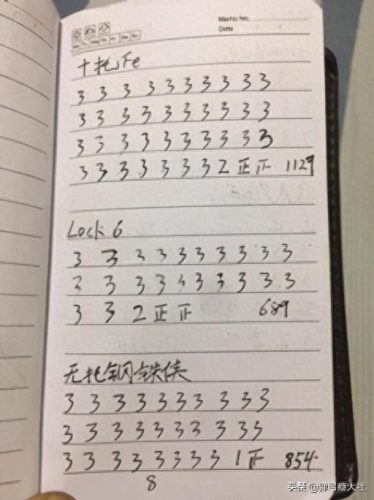 Memo No.
Date
十托Fe
3 3 3 3 3 3 3 3 3 3
3 3 3 3 3 3 3 3 3 3
3 3 3 3 3 3 3 3 3 3
3 3 3 3 3 3 3 2 正 正 1129
Lock 6
3 3 3 3 3 3 3 3 3 3
3 3 3 3 3 3 3 3 3 3
3 3 2 正 正 689
无托钢铁侠
3 3 3 3 3 3 3 3 3 3
3 3 3 3 3 3 3 3 3 3
3 3 3 3 3 3 3 3 1 正 854
8
头条